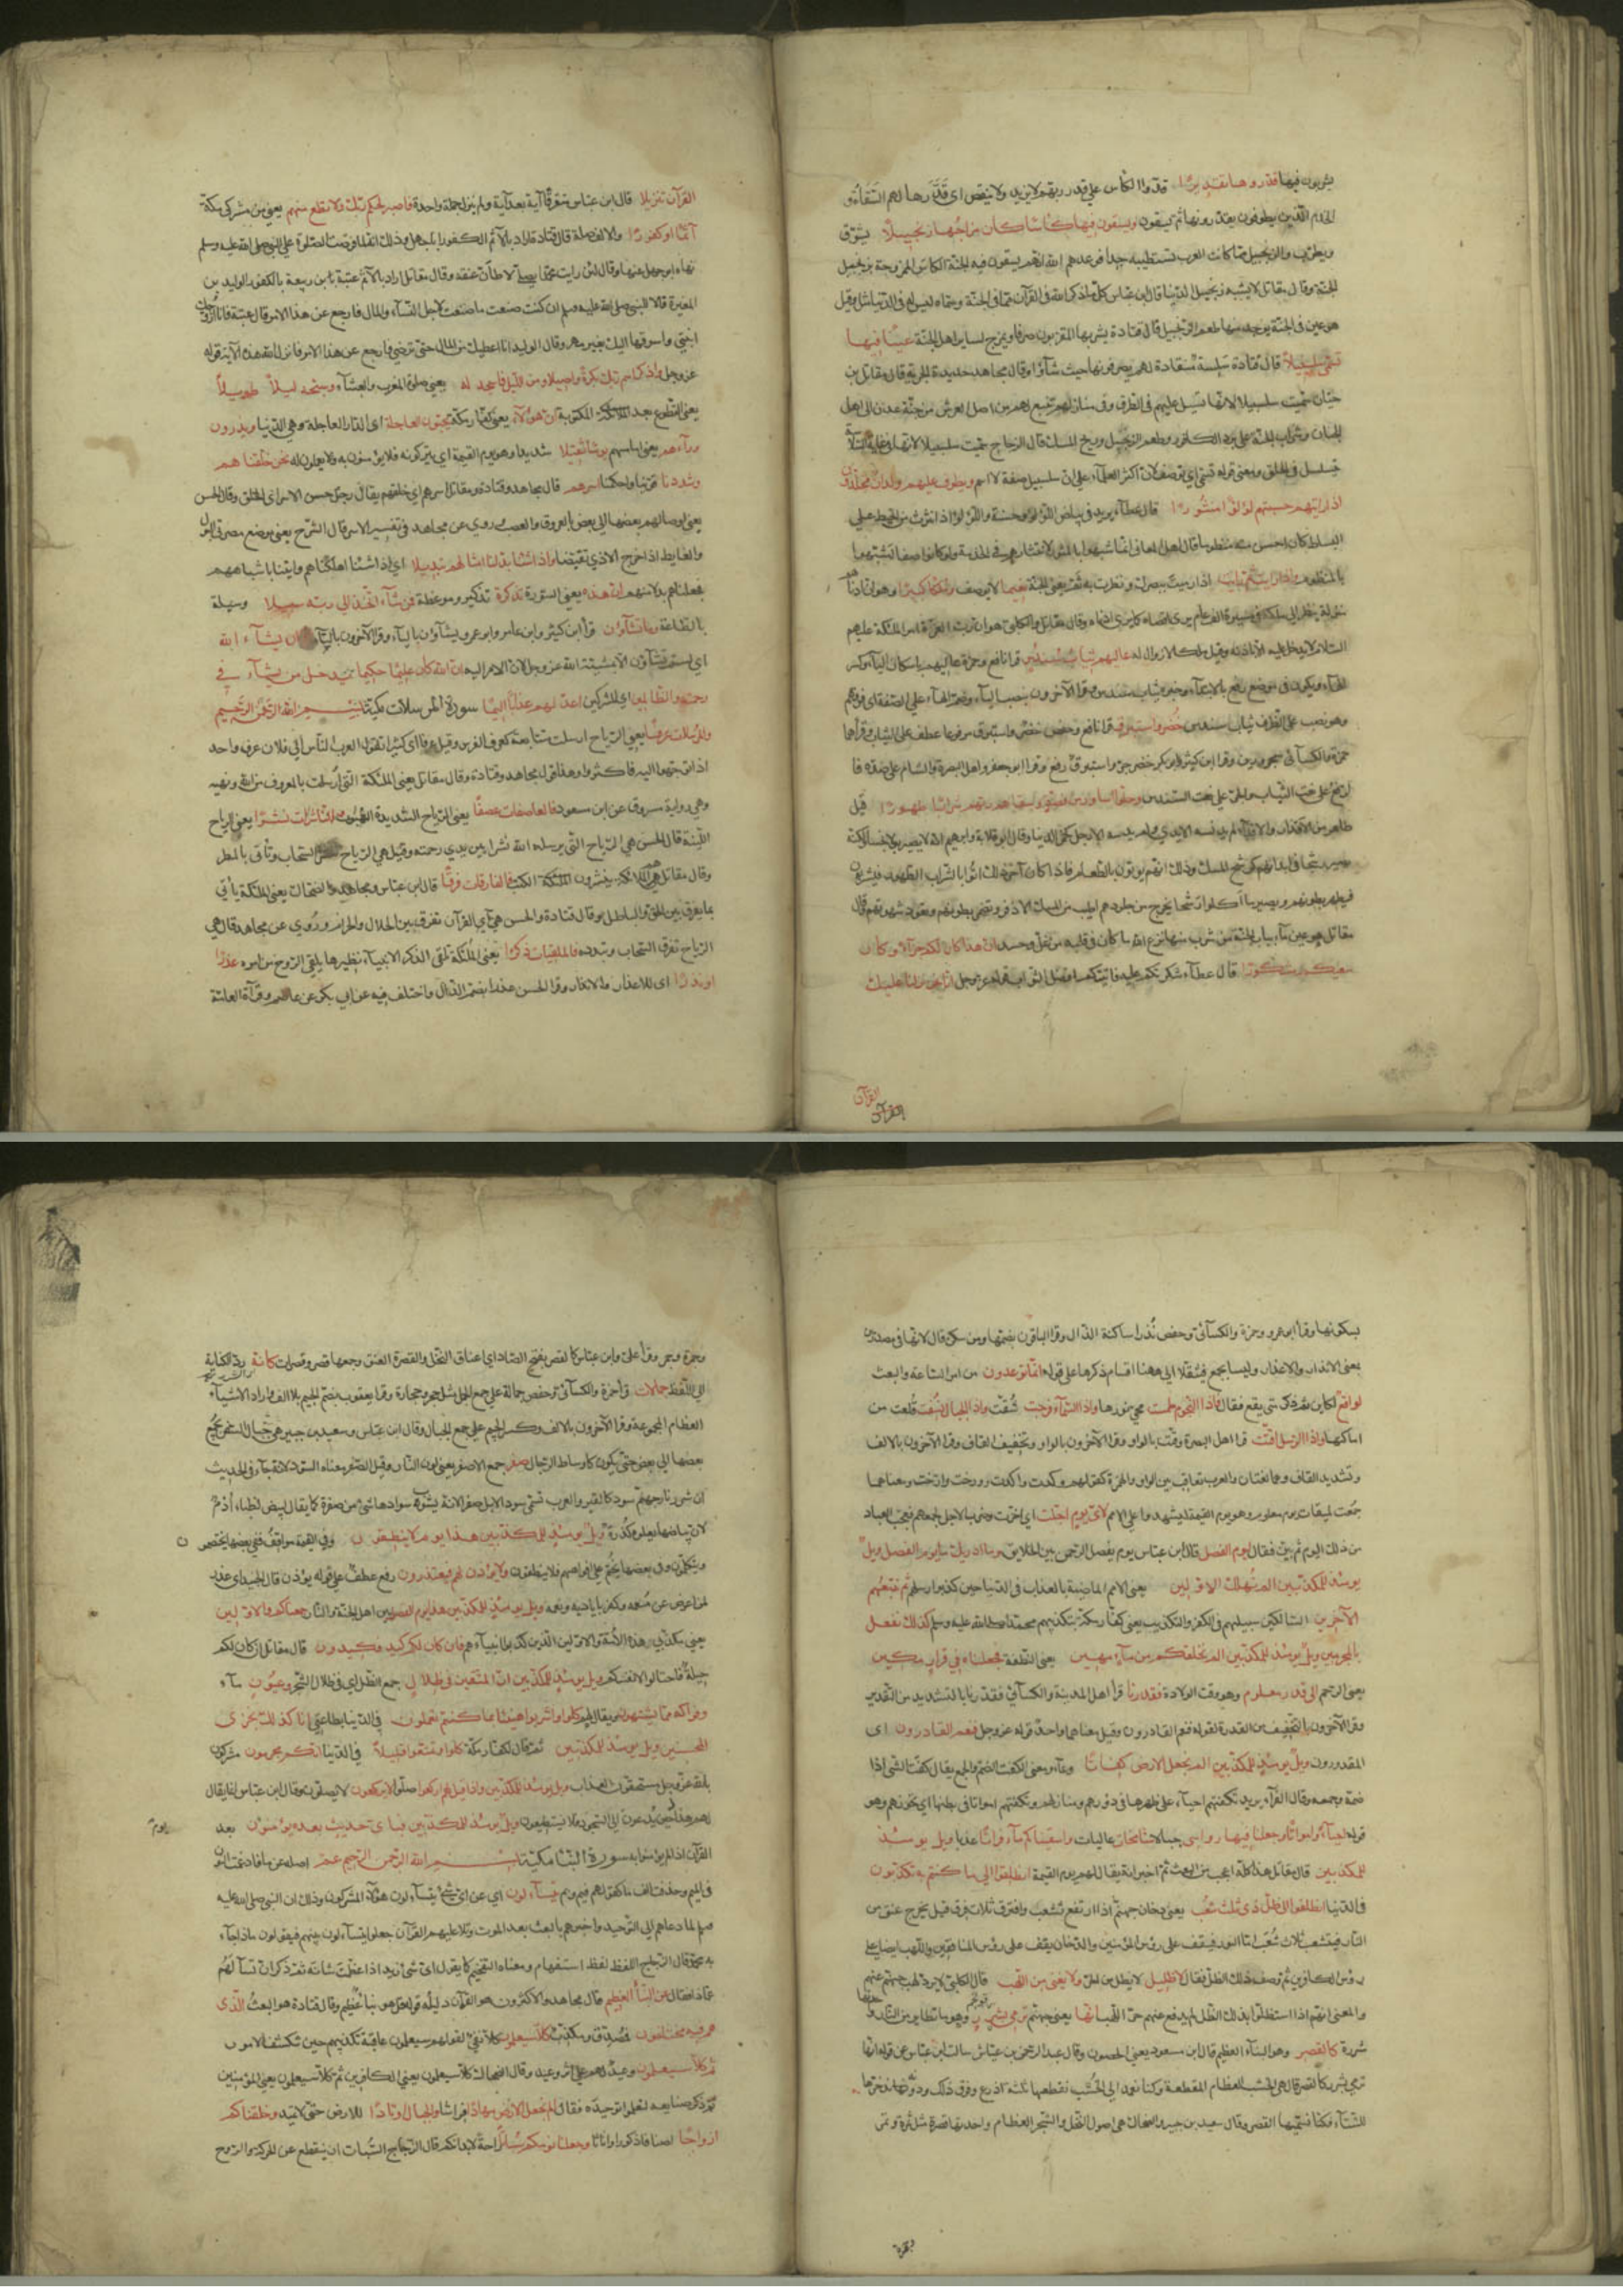 يشربون فيها قدروها تقديرا قدّروا الكأس على قدر ريّهم لا يزيد ولا ينقص اى قدّرها لهم السقاة و
الخدم الذين يطوفون يقدّرونها ثم يسقون ويسقون فيها كأسا كان مزاجها زنجبيلا يشوّق
ويطرب والزنجبيل مما كانت العرب تستطيبه جدا فوعدهم الله انهم يسقون فى الجنة الكاس الممزوجة بزنجبيل
الجنة وقال مقاتل لا يشبه زنجبيل الدنيا قال ابن عباس كل ما ذكر الله فى القرآن مما فى الجنة وسماه ليس له فى الدنيا مثل وقيل
هو عين فى الجنة يوجد منها طعم الزنجبيل قال قتادة يشربها المقربون صرفا ويمزج لساير اهل الجنة عينا فيها
تسمى سلسبيلا قال قتادة سلسة منقادة لهم يصرفونها حيث شاؤا وقال مجاهد حديدة الجرية قال مقاتل بن
حيان سميت سلسبيلا لانها تسيل عليهم فى الطرق وفى منازلهم تنبع لهم من اصل العرش من جنة عدن الى اهل
الجنان وشراب الجنة على برد الكافور وطعم الزنجبيل وريح المسك قال الزجاج سميت سلسبيلا لانها فى غاية السلاسة
تتسلسل فى الحلق ومعنى قوله تسمى اى توصف لان اكثر العلماء على ان سلسبيل صفة لا اسم ويطوف عليهم ولدان مخلدون
اذا رايتهم حسبتهم لؤلؤا منثورا قال عطاء يريد فى بياض اللؤلؤ وحسنه واللؤلؤ اذا انتثر من الخيط على
البساط كان احسن منه منظوما وقال اهل المعانى انما شبهوا بالمنثور لانتثارهم فى الخدمة ولو كانوا صفا لشبهوا
بالمنظوم واذا رايت ثم رايت اذا رميت ببصرك ونظرت به ثم يعنى الجنة نعيما لا يوصف وملكا كبيرا وهو ان ادناهم
منزلة ينظر الى ملكه فى مسيرة الف عام يرى اقصاه كما يرى ادناه وقال مقاتل والكلبى هو ان رسول رب العزة من الملئكة عليهم
السلام لا يدخل عليه الا باذنه وقيل ملكا لا زوال له عاليهم ثياب سندس قرا نافع وحمزة عاليهم باسكان الياء وكسر
الهاء ويكون فى موضع رفع بالابتداء وخبره ثياب سندس وقرا الآخرون بنصب الياء وضم الهاء على الصفة اى فوقهم
وهو نصب على الظرف ثياب سندس خضر واستبرق قرا نافع وحفص خضر واستبرق مرفوعا عطف على الثياب وقراهما
حمزة والكسائى مجرورين وقرا ابن كثير وابو بكر خضر جر واستبرق رفع وقرا ابو جعفر واهل البصرة والشام على ضده فا
لرفع على نعت الثياب والجر على نعت السندس وحلوا اساور من فضة وسقاهم ربهم شرابا طهورا قيل
طاهر من الاقذار والاقذاء لم تدنسه الايدى والارجل كخمر الدنيا وقال ابو قلابة وابرهيم انه لا يصير بولا نجسا ولكنه
يصير رشحا فى ابدانهم كرشح المسك وذلك انهم يؤتون بالطعام فاذا كان آخر ذلك اتوا بالشراب الطهور فيشربون
فيطهر بطونهم ويصير ما اكلوا رشحا يخرج من جلودهم اطيب من المسك الاذفر وتضمر بطونهم وتعود شهوتهم وقال
مقاتل هو عين ماء بباب الجنة من شرب منها نزع الله ما كان فى قلبه من غل وحسد ان هذا كان لكم جزاء وكان
سعيكم مشكورا قال عطاء شكرتكم عليه فاثيبكم افضل الثواب قوله عز وجل انا نحن نزلنا عليك
القرآن
القرآن
القرآن تنزيلا قال ابن عباس متفرقا آية بعد آية ولم ينزل جملة واحدة فاصبر لحكم ربك ولا تطع منهم يعنى من مشركى مكة
آثما او كفورا قال قتادة اراد بالآثم الكفور ابا جهل وذلك انه لما فرضت الصلوة على النبى صلى الله عليه وسلم
نهاه ابو جهل عنها وقال لئن رايت محمدا يصلى لاطأن عنقه وقال مقاتل اراد بالآثم عتبة بن ربيعة بالكفور الوليد بن
المغيرة قالا للنبى صلى الله عليه وسلم ان كنت صنعت ما صنعت لاجل النساء والمال فارجع عن هذا الامر قال عتبة فانا ازوجك
ابنتى واسوقها اليك بغير مهر وقال الوليد انا اعطيك من المال حتى ترضى فارجع عن هذا الامر فانزل الله هذه الآية قوله
عز وجل واذكر اسم ربك بكرة واصيلا ومن الليل فاسجد له يعنى صلوة المغرب والعشاء وسبحه ليلا طويلا
يعنى التطوع بعد المكتوبة ان هؤلاء يعنى كفار مكة يحبون العاجلة اى الدار العاجلة وهى الدنيا ويذرون
وراءهم يعنى امامهم يوما ثقيلا شديدا وهو يوم القيمة اى يتركونه فلا يؤمنون به ولا يعملون له نحن خلقناهم
وشددنا قوينا واحكمنا اسرهم قال مجاهد وقتادة ومقاتل اسرهم اى خلقهم يقال رجل حسن الاسر اى الخلق وقال الحسن
يعنى اوصالهم بعضها الى بعض بالعروق والعصب روى عن مجاهد فى تفسير الاسر قال الشرج يعنى موضع مصرفى البول
والغايط اذا خرج الاذى تقبضا واذا شئنا بدلنا امثالهم تبديلا اى اذا شئنا اهلكناهم واتينا باشباههم
فجعلناهم بدلا منهم ان هذه يعنى السورة تذكرة تذكير وموعظة فمن شاء اتخذ الى ربه سبيلا وسيلة
بالطاعة وما تشاؤن قرا ابن كثير وابن عامر وابو عمرو يشاؤن بالياء وقرا الآخرون بالتاء ان يشاء الله
اى لستم تشاؤن الا بمشيئة الله عز وجل لان الامر اليه ان الله كان عليما حكيما يدخل من يشاء فى
رحمته والظالمين اى المشركين اعد لهم عذابا اليما سورة المرسلات مكية بسم الله الرحمن الرحيم
والمرسلات عرفا يعنى الرياح ارسلت متتابعة كعرف الفرس وقيل عرفا اى كثيرا تقول العرب الناس الى فلان عرف واحد
اذا توجهوا اليه فاكثروا وهذا قول مجاهد وقتادة وقال مقاتل يعنى الملئكة التى ارسلت بالمعروف من امر الله ونهيه
وهى رواية مسروق عن ابن مسعود فالعاصفات عصفا يعنى الرياح الشديدة الهبوب والناشرات نشرا يعنى الرياح
اللينة قال الحسن هى الرياح التى يرسلها الله نشرا بين يدى رحمته وقيل هى الرياح تنشر السحاب وتأتى بالمطر
وقال مقاتل هم الملائكة ينشرون الكتب فالفارقات فرقا قال ابن عباس ومجاهد والضحاك يعنى الملئكة يأتى
بما يفرق بين الحق والباطل وقال قتادة والحسن هى آى القرآن تفرق بين الحلال والحرام وروى عن مجاهد قال هى
الرياح تفرق السحاب وتبدده فالملقيات ذكرا يعنى الملئكة تلقى الذكر الى الانبياء نظيرها يلقى الروح من امره عذرا
او نذرا اى للاعذار والانذار وقرا الحسن عذرا بضم الذال واختلف فيه عن ابى بكر عن عاصم وقراءة العامة
بسكونها وقرا ابو عمرو وحمزة والكسائى وحفص نذرا ساكنة الذال وقرا الباقون بضمها ومن سكن قال لانها فى مصدرين
بمعنى الانذار والاعذار وليسا بجمع فيثقلا الى ههنا اقسام ذكرها على قوله انما توعدون من امر الساعة والبعث
لواقع لكاين ثم ذكر متى يقع فقال فاذا النجوم طمست محى نورها واذا السماء فرجت شقت واذا الجبال نسفت قلعت من
اماكنها واذا الرسل اقتت قرا اهل البصرة وقتت بالواو وقرا الآخرون بالواو وتخفيف القاف وقرا الآخرون بالالف
وتشديد القاف وهما لغتان والعرب تعاقب بين الواو والهمزة كقولهم وكدت واكدت وورخت وارخت ومعناهما
جمعت لميقات يوم معلوم وهو يوم القيمة ليشهدوا على الامم لاى يوم اجلت اى اخرت وضرب الاجل لجمعهم فعجب العباد
من ذلك اليوم ثم بين فقال ليوم الفصل قال ابن عباس يوم يفصل الرحمن بين الخلايق وما ادريك ما يوم الفصل ويل
يومئذ للمكذبين الم نهلك الاولين يعنى الامم الماضية بالعذاب فى الدنيا حين كذبوا رسلهم ثم نتبعهم
الآخرين السالكين سبيلهم فى الكفر والتكذيب يعنى كفار مكة بتكذيبهم محمدا صلى الله عليه وسلم كذلك نفعل
بالمجرمين ويل يومئذ للمكذبين الم نخلقكم من ماء مهين يعنى النطفة فجعلناه فى قرار مكين
يعنى الرحم الى قدر معلوم وهو وقت الولادة فقدرنا قرأ اهل المدينة والكسائى فقدرنا بالتشديد من التقدير
وقرا الآخرون بالتخفيف من القدرة لقوله فنعم القادرون وقيل معناهما واحد قوله عز وجل فنعم القادرون اى
المقدرون ويل يومئذ للمكذبين الم نجعل الارض كفاتا وعاء ومعنى الكفت الضم والجمع يقال كفت الشئ اذا
ضمه وجمعه وقال الفراء يريد تكفتهم احياء على ظهرها فى دورهم ومنازلهم وتكفتهم امواتا فى بطنها اى تحوزهم وهو
قوله احياء وامواتا وجعلنا فيها رواسى جبالا شامخات عاليات واسقيناكم ماء فراتا عذبا ويل يومئذ
للمكذبين قال مقاتل هذا كله اعجب من البعث ثم اخبر انه يقال لهم يوم القيمة انطلقوا الى ما كنتم به تكذبون
فى الدنيا انطلقوا الى ظل ذى ثلث شعب يعنى دخان جهنم اذا ارتفع تشعب وافترق ثلاث فرق قيل يخرج عنق من
النار فيتشعب ثلاث شعب اما النور فيقف على رؤس المؤمنين والدخان يقف على رؤس المنافقين واللهب الصافى على
رؤس الكافرين ثم وصف ذلك الظل فقال لا ظليل لا يظل من الحر ولا يغنى من اللهب قال الكلبى لا يرد لهب جهنم عنهم
والمعنى انهم اذا استظلوا بذلك الظل لم يدفع عنهم حر اللهب انها يعنى جهنم ترمى بشرر وهو ما تطاير من النار واحدها
شررة كالقصر وهو البناء العظيم قال ابن مسعود يعنى الحصون وقال عبد الرحمن بن عباس سالت ابن عباس عن قوله انها
ترمى بشرر كالقصر قال هى الخشب العظام المقطعة وكنا نعمد الى الخشب نقطعها ثلثة اذرع وفوق ذلك ودونه ندخرها
للشتاء فكنا نسميها القصر وقال سعيد بن جبير والضحاك هى اصول النخل والشجر العظام واحدتها قصرة مثل تمرة وتمر
وجمرة وجمر وقرأ على وابن عباس كالقصر بفتح الصاد اى اعناق النخل والقصرة العنق وجمعها قصر وقصرات كانه رد الكناية
الى اللفظ جمالات قرأ حمزة والكسائى وحفص جمالة على جمع الجمل مثل حجر وحجارة وقرا يعقوب بضم الجيم بلا الف اراد الاشياء
العظام المجموعة وقرا الآخرون بالالف وكسر الجيم على جمع الجمال وقال ابن عباس وسعيد بن جبير هى حبال السفن يجمع
بعضها الى بعض حتى يكون كاوساط الرجال صفر جمع الاصفر يعنى لون النار وقيل الصفر معناه السود لانه جاء فى الحديث
ان شرر نار جهنم سود كالقير والعرب تسمى سود الابل صفرا لانه يشوب سوادها شئ من صفرة كما يقال لبيض الظباء أدم
لان بياضها يعلوه كدرة ويل يومئذ للمكذبين هذا يوم لا ينطقون وفى القيمة مواقف ففى بعضها يختصمون
ويتكلمون وفى بعضها يختم على افواههم فلا ينطقون ولا يؤذن لهم فيعتذرون رفع عطف على قوله يؤذن قال الجنيد اى عذر
لمن اعرض عن منعمه وكفر باياديه ونعمه ويل يومئذ للمكذبين هذا يوم الفصل بين اهل الجنة والنار جمعناكم والاولين
يعنى مكذبى هذه الامة والاولين الذين كذبوا انبياءهم فان كان لكم كيد فكيدون قال مقاتل ان كان لكم
حيلة فاحتالوا لانفسكم ويل يومئذ للمكذبين ان المتقين فى ظلال جمع الظل اى فى ظلال الشجر وعيون ماء
وفواكه مما يشتهون ويقال لهم كلوا واشربوا هنيئا بما كنتم تعملون فى الدنيا بطاعتى انا كذلك نجزى
المحسنين ويل يومئذ للمكذبين ثم قال لكفار مكة كلوا وتمتعوا قليلا فى الدنيا انكم مجرمون مشركون
بالله عز وجل مستحقون العذاب ويل يومئذ للمكذبين واذا قيل لهم اركعوا صلوا لا يركعون لا يصلون وقال ابن عباس انما يقال
لهم هذا حين يدعون الى السجود فلا يستطيعون ويل يومئذ للمكذبين فباى حديث بعده يؤمنون بعد
القرآن اذا لم يؤمنوا به سورة النبا مكية بسم الله الرحمن الرحيم عم اصله عن ما فادغمت النون
فى الميم وحذفت الف ما كقولهم فيم وبم يتساءلون اى عن اى شئ يتساءلون هؤلاء المشركون وذلك ان النبى صلى الله عليه
وسلم لما دعاهم الى التوحيد واخبرهم بالبعث بعد الموت وتلا عليهم القرآن جعلوا يتساءلون بينهم فيقولون ماذا جاء
به محمد قال الزجاج اللفظ لفظ استفهام ومعناه التفخيم كما يقول اى شئ زيد اذا عظمت شانه ثم ذكر ان تساءلهم
عماذا فقال عن النبأ العظيم قال مجاهد والاكثرون هو القرآن دليله قوله قل هو نبأ عظيم وقال قتادة هو البعث الذى
هم فيه مختلفون فمصدق ومكذب كلا سيعلمون كلا نفى لقولهم سيعلمون عاقبة تكذيبهم حين تنكشف الامور
ثم كلا سيعلمون وعيد لهم على اثر وعيد وقال الضحاك كلا سيعلمون يعنى الكافرين ثم كلا سيعلمون يعنى المؤمنين
ثم ذكر صنايعه ليعلموا توحيده فقال الم نجعل الارض مهادا فراشا والجبال اوتادا للارض حتى لا تميد وخلقناكم
ازواجا اصنافا ذكورا واناثا وجعلنا نومكم سباتا راحة لابدانكم قال الزجاج السبات ان ينقطع عن الحركة والروح